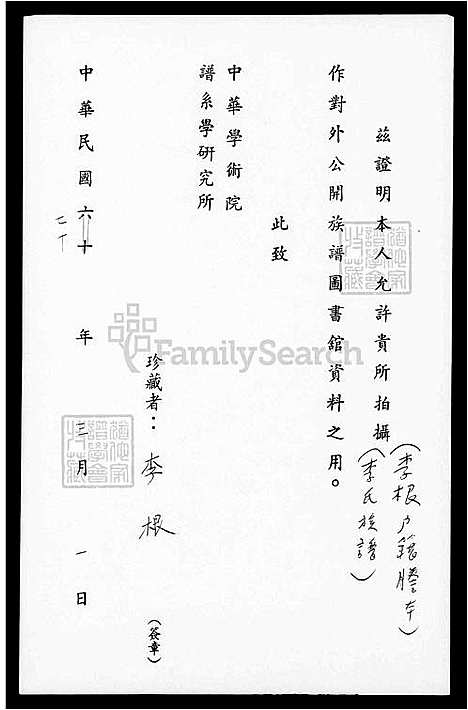 茲證明本人允許貴所拍攝(李根戶籍謄本)
(李氏族譜)
作對外公開族譜圖書館資料之用。
此致
中華學術院
譜系學研究所
珍藏者:李根(簽章)
中華民國六十年三月一日
FamilySearch